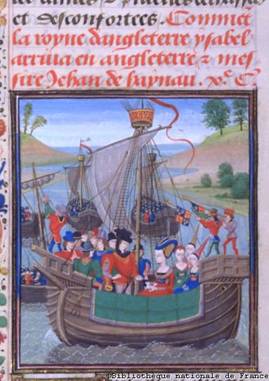 et Desconfortees. Comment
la royne dangleterre ysabel
arriva en angleterre &
sire Jehan de haynau.
©Bibliothèque nationale de France